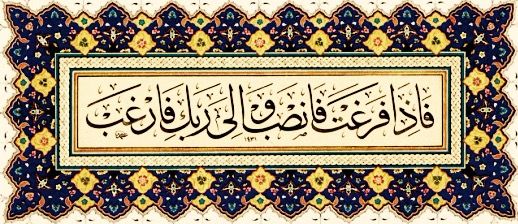 فَإِذَا فَرَغْتَ فَانْصَبْ وَإِلَى رَبِّكَ فَارْغَبْ